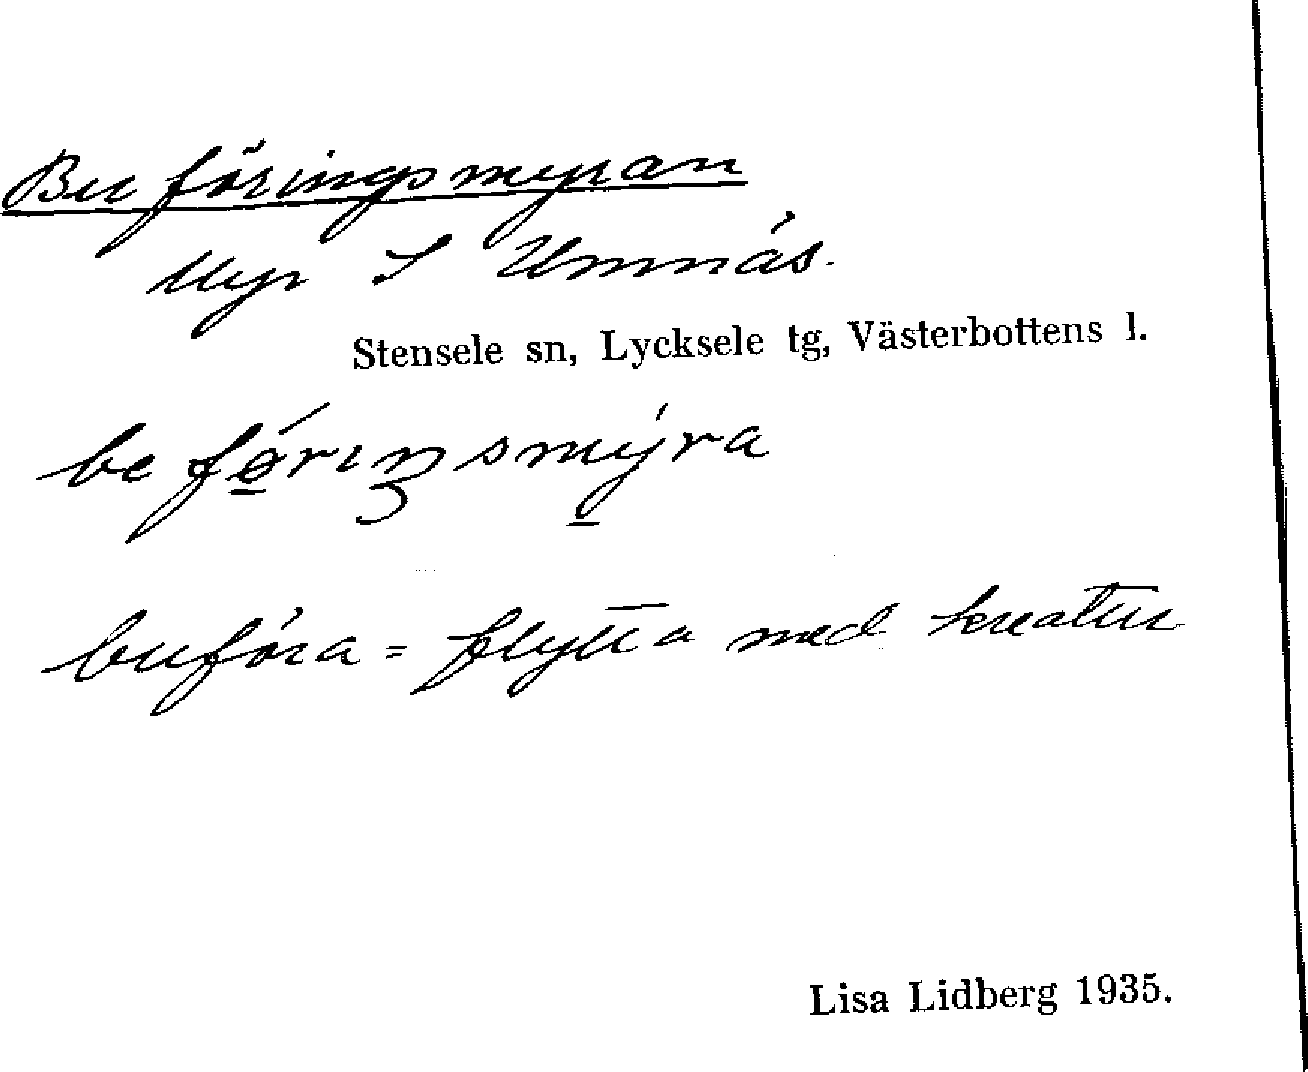 Buföringsmyran
Myr S Umnäs.
Stensele sn, Lycksele tg, Västerbottens l.
befǿ̲rıŋsmý̲ra
buföra = flytta med kreatur
Lisa Lidberg 1935.